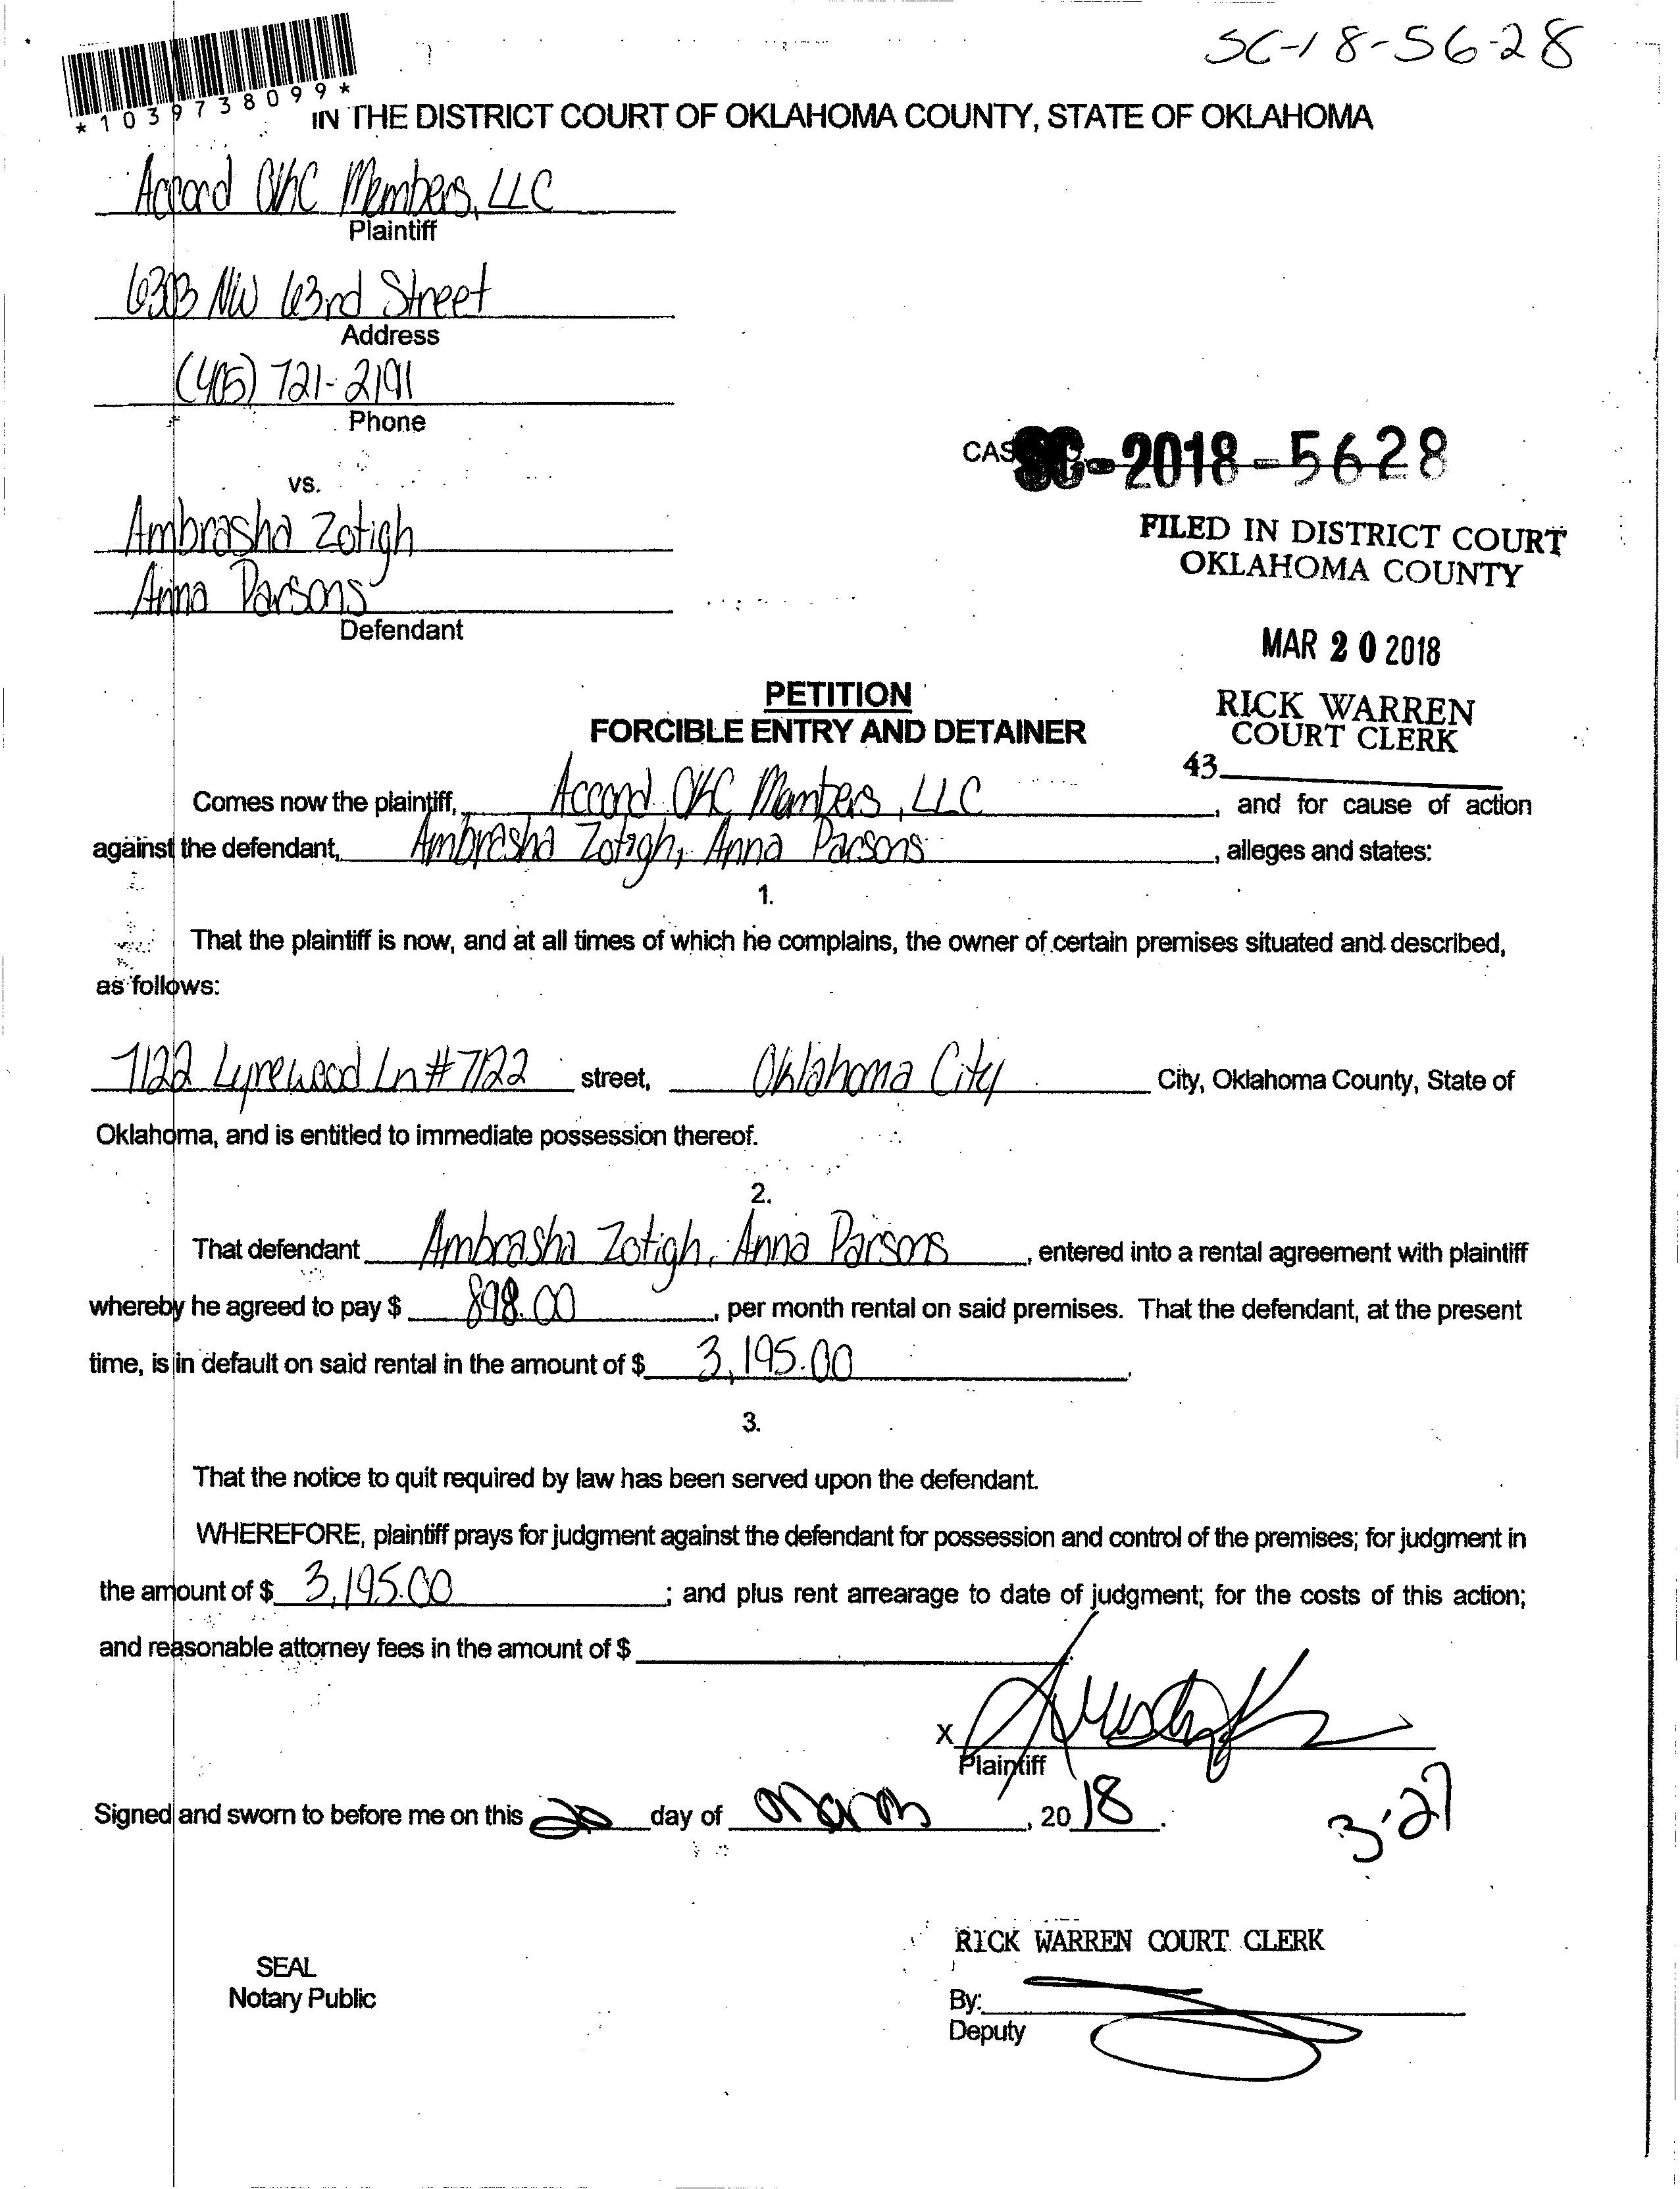 SC-18-5628
*1039738099*
IN THE DISTRICT COURT OF OKLAHOMA COUNTY, STATE OF OKLAHOMA
Accord OKC Members, LLC
Plaintiff
6303 NW 63rd Street
Address
(405) 721-2191
Phone
CAS SC-2018-5628
vs.
Ambrasha Zotigh
Anna Parsons
Defendant
FILED IN DISTRICT COURT
OKLAHOMA COUNTY
MAR 20 2018
RICK WARREN
COURT CLERK
43
PETITION
FORCIBLE ENTRY AND DETAINER
Comes now the plaintiff, Accord OKC Members, LLC, and for cause of action
against the defendant, Ambrasha Zotigh, Anna Parsons, alleges and states:
1.
That the plaintiff is now, and at all times of which he complains, the owner of certain premises situated and described,
as follows:
7122 Lyrewood Ln #7122 street, Oklahoma City City, Oklahoma County, State of
Oklahoma, and is entitled to immediate possession thereof.
2.
That defendant Ambrasha Zotigh, Anna Parsons, entered into a rental agreement with plaintiff
whereby he agreed to pay $ 898.00, per month rental on said premises. That the defendant, at the present
time, is in default on said rental in the amount of $ 3,195.00.
3.
That the notice to quit required by law has been served upon the defendant.
WHEREFORE, plaintiff prays for judgment against the defendant for possession and control of the premises; for judgment in
the amount of $ 3,195.00; and plus rent arrearage to date of judgment; for the costs of this action;
and reasonable attorney fees in the amount of $
X
Plaintiff
Signed and sworn to before me on this 20 day of March, 20 18.
3-27
RICK WARREN COURT CLERK
SEAL
Notary Public
By:
Deputy